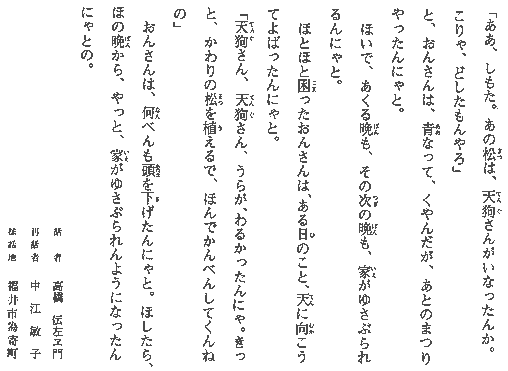 「ああ、しもた。あの松は、天狗さんがいなったんか。
こりゃ、どしたもんやろ」
と、おんさんは、青なって、くやんだが、あとのまつり
やったんにゃと。
ほいで、あくる晩も、その次の晩も、家がゆさぶられ
るんにゃと。
ほとほと困ったおんさんは、ある日のこと、天に向こう
てよばったんにゃと。
「天狗さん、天狗さん、うらが、わるかったんにゃ。きっ
と、かわりの松を植えるで、ほんでかんべんしてくんね
の」
おんさんは、何べんも頭を下げたんにゃと。ほしたら、
ほの晩から、やっと、家がゆさぶられんようになったん
にゃとの。
話者 高橋 伝左ヱ門
再話者 中江敏子
採話地 福井市為寄町